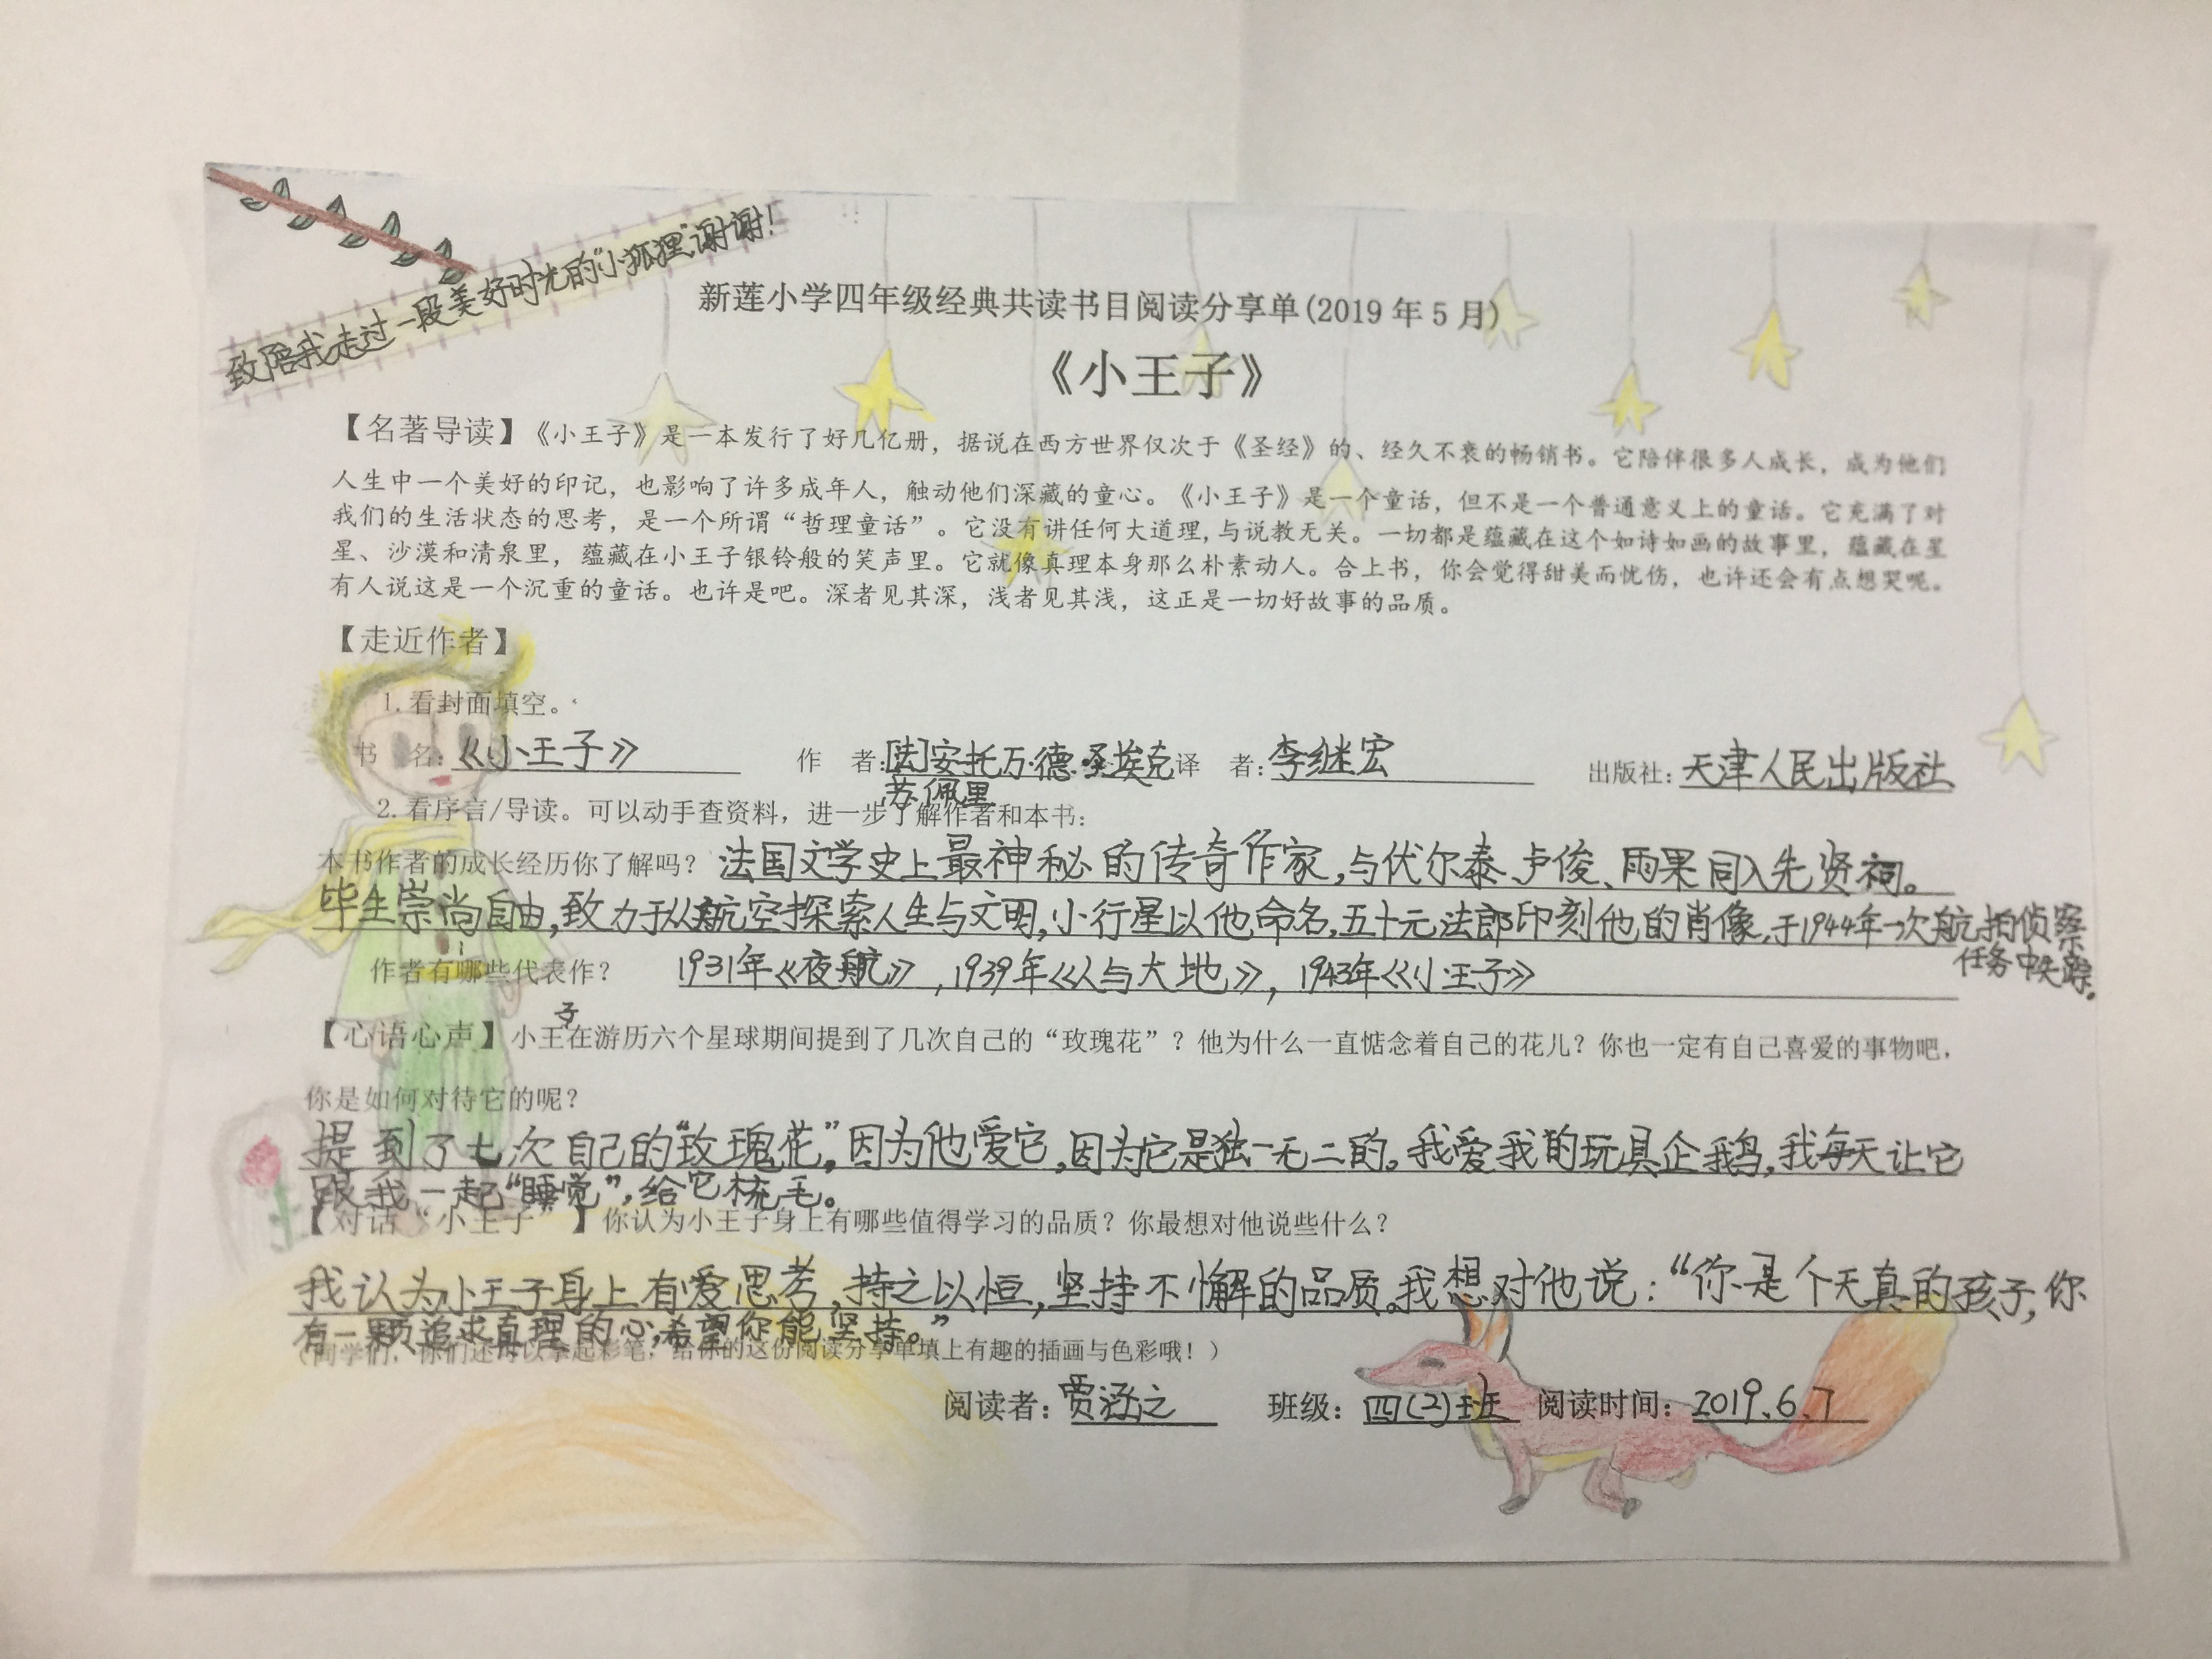 致陪我走过一段美好时光的“小狐狸”,谢谢!
新莲小学四年级经典共读书目阅读分享单(2019年5月)
《小王子》
【名著导读】《小王子》是一本发行了好几亿册，据说在西方世界仅次于《圣经》的、经久不衰的畅销书。它陪伴很多人成长，成为他们
人生中一个美好的印记，也影响了许多成年人，触动他们深藏的童心。《小王子》是一个童话，但不是一个普通意义上的童话。它充满了对
我们的生活状态的思考，是一个所谓“哲理童话”。它没有讲任何大道理,与说教无关。一切都是蕴藏在这个如诗如画的故事里，蕴藏在星
星、沙漠和清泉里，蕴藏在小王子银铃般的笑声里。它就像真理本身那么朴素动人。合上书，你会觉得甜美而忧伤，也许还会有点想哭呢。
有人说这是一个沉重的童话。也许是吧。深者见其深，浅者见其浅，这正是一切好故事的品质。
【走近作者】
1.看封面填空。
书 名:《小王子》 作 者:[法]安托万·德·圣埃克 译 者:李继宏 出版社:天津人民出版社
苏佩里
2.看序言/导读。可以动手查资料，进一步了解作者和本书:
本书作者的成长经历你了解吗？法国文学史上最神秘的传奇作家,与伏尔泰、卢俊、雨果同入先贤祠。
毕生崇尚自由,致力于从航空探索人生与文明,小行星以他命名,五十元法郎印刻他的肖像,于1944年一次航拍侦察
任务中失踪。
作者有哪些代表作？ 1931年《夜航》,1939年《人与大地》,1943年《小王子》
子
【心语心声】小王在游历六个星球期间提到了几次自己的“玫瑰花”？他为什么一直惦念着自己的花儿？你也一定有自己喜爱的事物吧，
你是如何对待它的呢？
提到了七次自己的“玫瑰花”,因为他爱它,因为它是独一无二的。我爱我的玩具企鹅,我每天让它
跟我一起“睡觉”,给它梳毛。
【对话“小王子”】你认为小王子身上有哪些值得学习的品质？你最想对他说些什么？
我认为小王子身上有爱思考,持之以恒,坚持不懈的品质。我想对他说:“你是个天真的孩子,你
有一颗追求真理的心,希望你能坚持。”
（同学们，你们还可以拿起彩笔，给你的这份阅读分享单填上有趣的插画与色彩哦！）
阅读者:贾涵之 班级:四(2)班 阅读时间:2019.6.7